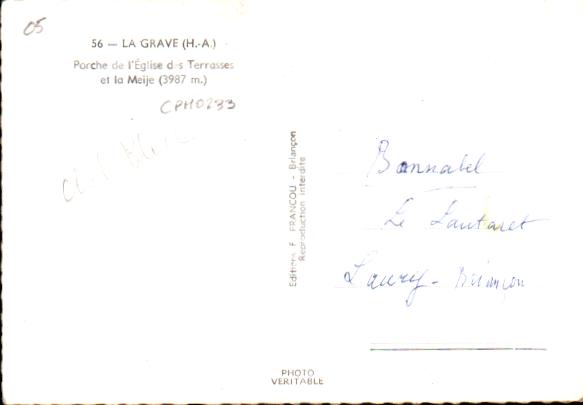 05
56 — LA GRAVE (H.-A.)
Porche de l'Église des Terrasses
et la Meije (3987 m.)
CPM0233
Editions F. FRANCOU - Briançon
Reproduction interdite
Bonnabel
Le Lautaret
Briançon
PHOTO
VERITABLE